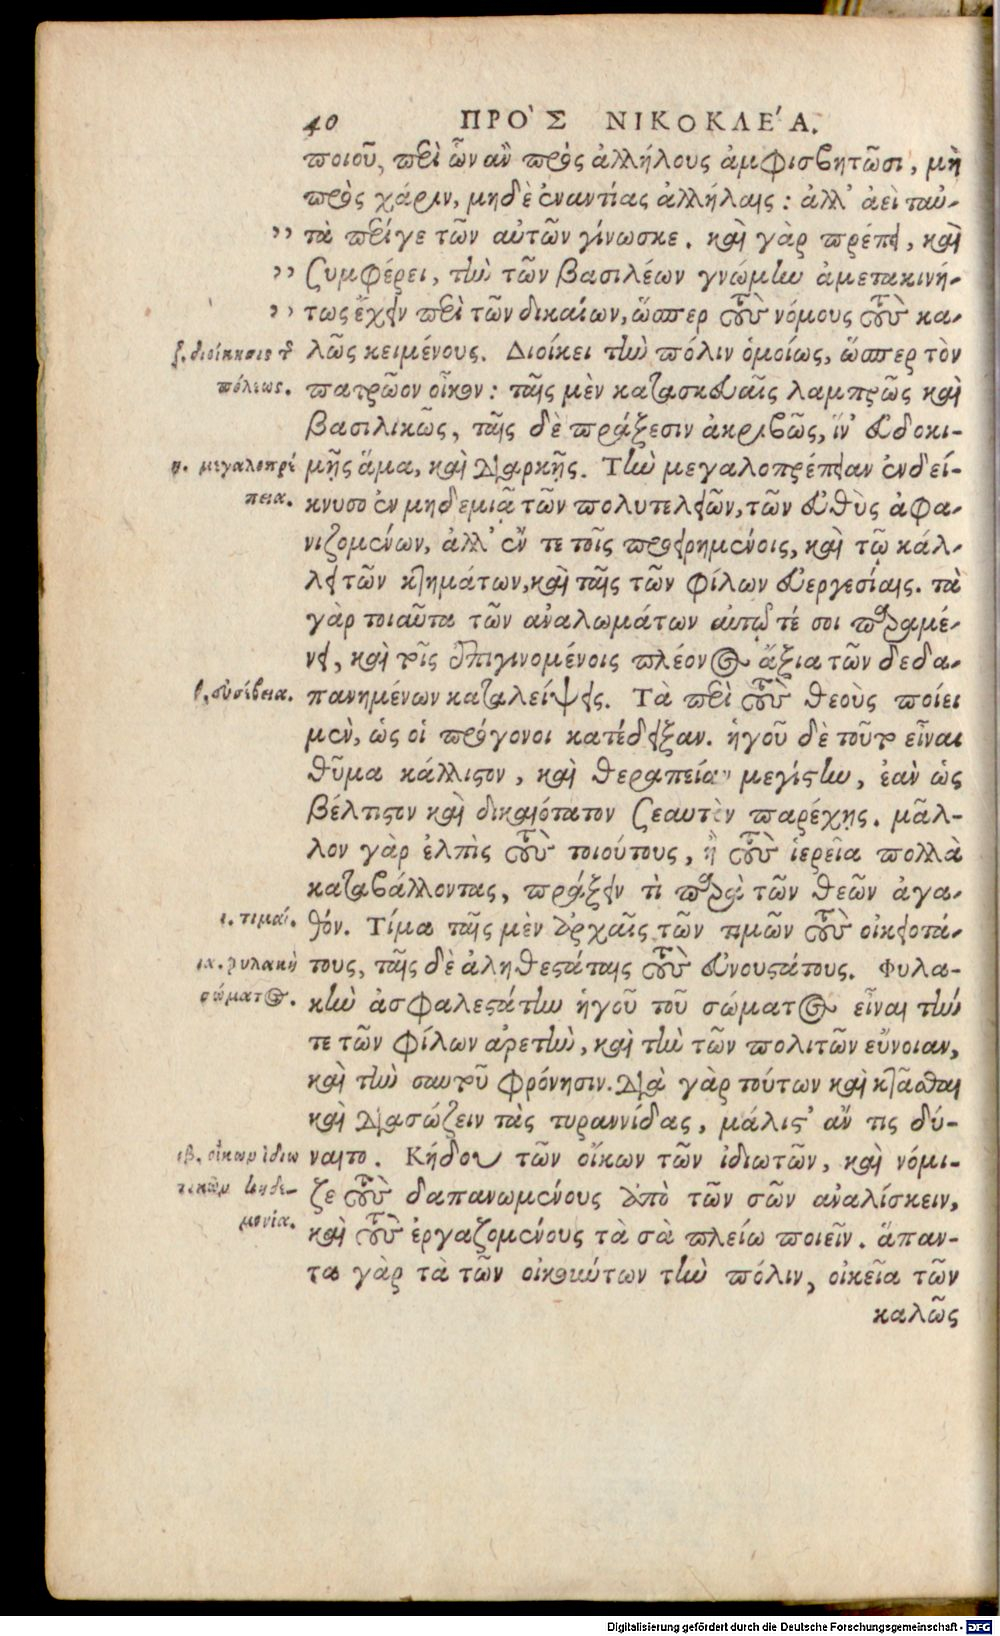 40 ΠΡῸΣ ΝΙΚΟΚΛΈΑ.
ποιοῦ, περὶ ὧν ἂν πρὸς ἀλλήλους ἀμφισβητῶσι, μὴ
πρὸς χάριν, μηδὲ ἐναντίας ἀλλήλαις : ἀλλ' ἀεὶ ταὐ-
" τὰ περί γε τῶν αὐτῶν γίνωσκε. καὶ γὰρ πρέπει, καὶ
" ζυμφέρει, τὴν τῶν βασιλέων γνώμην ἀμετακινή-
" τως ἔχειν περὶ τῶν δικαίων, ὥσπερ τοὺς νόμους τοὺς κα-
ζ. διοίκησις τῆς λῶς κειμένους. Διοίκει τὴν πόλιν ὁμοίως, ὥσπερ τὸν
πόλεως. πατρῷον οἶκον : ταῖς μὲν κατασκευαῖς λαμπρῶς καὶ
βασιλικῶς, ταῖς δὲ πράξεσιν ἀκριβῶς, ἵν' εὐδοκι-
η. μεγαλοπρέ μῇς ἅμα, καὶ διαρκῇς. Τὴν μεγαλοπρέπειαν ἐνδεί-
πεια. κνυσο ἐν μηδεμιᾷ τῶν πολυτελειῶν, τῶν εὐθὺς ἀφα-
νιζομένων, ἀλλ' ἔν τε τοῖς προειρημένοις, καὶ τῷ κάλ-
λει τῶν κτημάτων, καὶ ταῖς τῶν φίλων εὐεργεσίαις. τὰ
γὰρ τοιαῦτα τῶν ἀναλωμάτων αὐτῷ τέ σοι παραμέ-
νει, καὶ τοῖς ἐπιγινομένοις πλέονος ἄξια τῶν δεδα-
θ. εὐσέβεια. πανημένων καταλείψεις. Τὰ περὶ τοὺς θεοὺς ποίει
μὲν, ὡς οἱ πρόγονοι κατέδειξαν. ἡγοῦ δὲ τοῦτο εἶναι
θῦμα κάλλιστον, καὶ θεραπείαν μεγίστην, ἐὰν ὡς
βέλτιστον καὶ δικαιότατον ζεαυτὸν παρέχῃς. μᾶλ-
λον γὰρ ἐλπὶς τοὺς τοιούτους, ἢ τοὺς ἱερεῖα πολλὰ
καταβάλλοντας, πράξειν τὶ παρὰ τῶν θεῶν ἀγα-
ι. τιμαί. θόν. Τίμα ταῖς μὲν ἀρχαῖς τῶν τιμῶν τοὺς οἰκειοτά-
ια. φυλακὴ τους, ταῖς δὲ ἀληθεστάταις τοὺς εὐνουστάτους. Φυλα-
σώματος. κὴν ἀσφαλεστάτην ἡγοῦ τοῦ σώματος εἶναι τήν
τε τῶν φίλων ἀρετὴν, καὶ τὴν τῶν πολιτῶν εὔνοιαν,
καὶ τὴν σαυτοῦ φρόνησιν. διὰ γὰρ τούτων καὶ κτᾶσθαι
καὶ διασώζειν τὰς τυραννίδας, μάλιστ' ἄν τις δύ-
ιβ. οἴκων ἰδιω ναιτο. Κήδου τῶν οἴκων τῶν ἰδιωτῶν, καὶ νόμι-
τικῶν κηδε- ζε τοὺς δαπανωμένους ἀπὸ τῶν σῶν ἀναλίσκειν,
μονία. καὶ τοὺς ἐργαζομένους τὰ σὰ πλείω ποιεῖν. ἅπαν-
τα γὰρ τὰ τῶν οἰκούντων τὴν πόλιν, οἰκεῖα τῶν
καλῶς
Digitalisierung gefördert durch die Deutsche Forschungsgemeinschaft - DFG